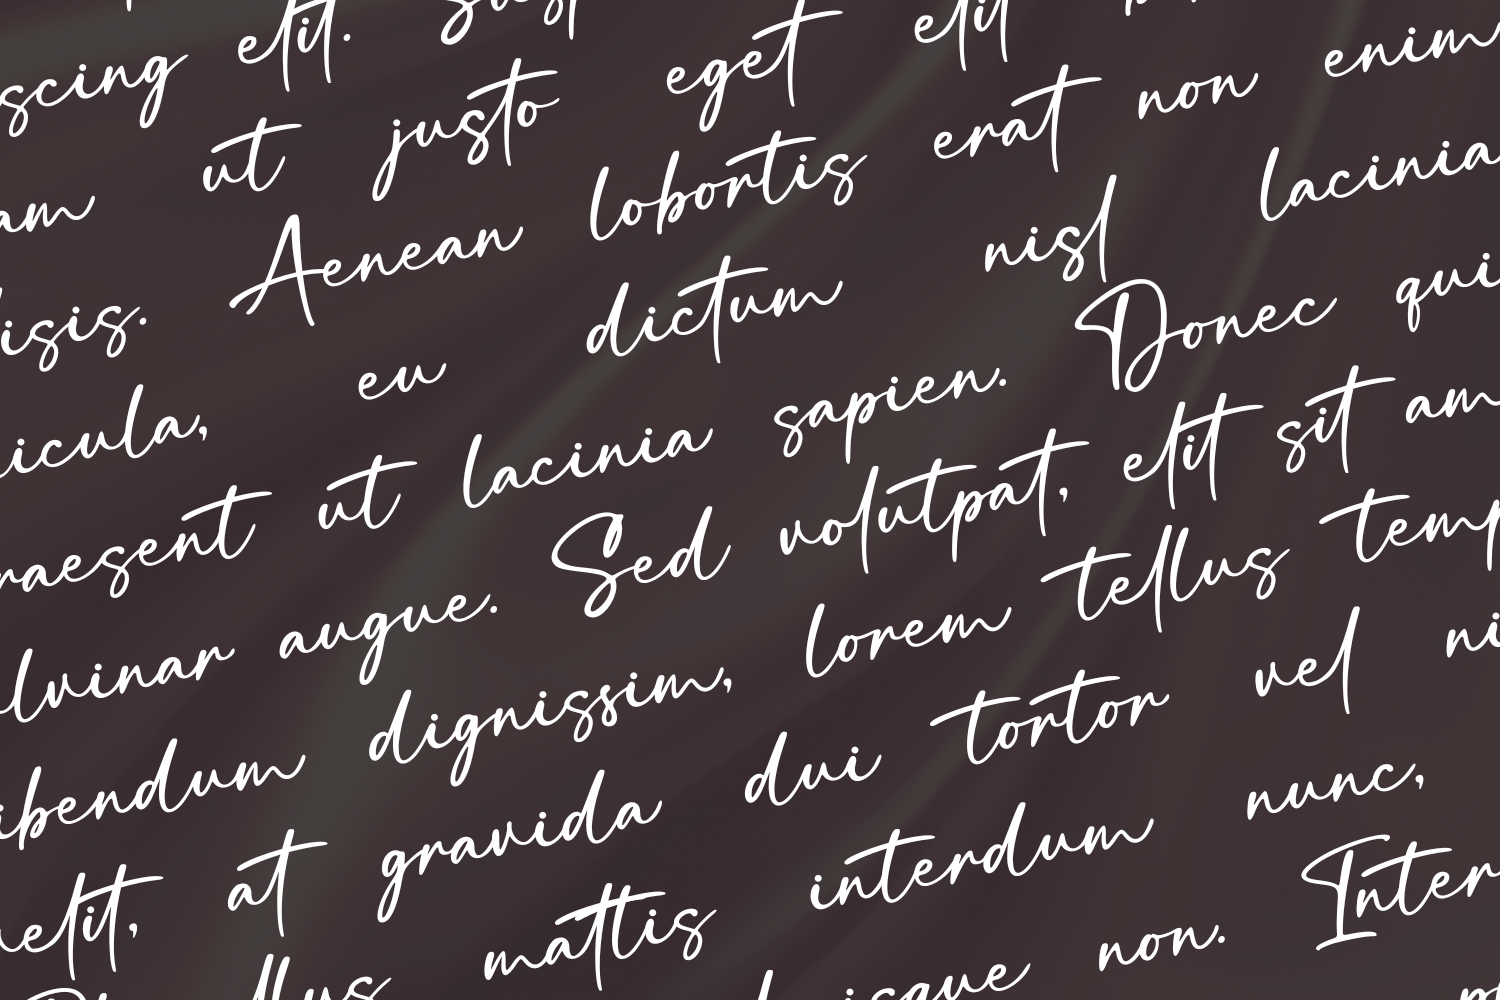 scing elit. Sus
am ut justo eget elit
isis. Aenean lobortis erat non enim
icula, eu dictum nisl lacinia
raesent ut lacinia sapien. Donec qui
lvinar augue. Sed volutpat, elit sit am
ibendum dignissim, lorem tellus temp
velit, at gravida dui tortor vel ni
llus mattis interdum nunc,
isque non. Inter